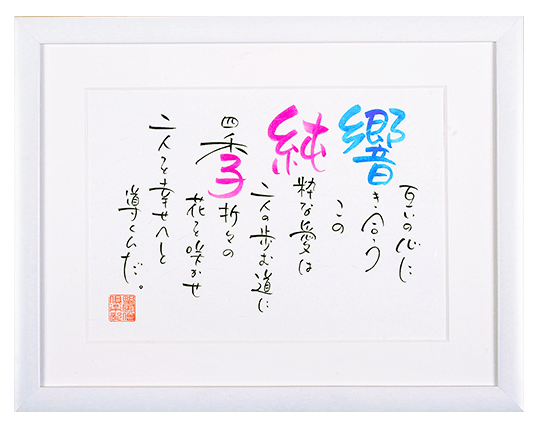 互いの心に
響き合う
この
純粋な愛は
二人の歩む道に
四季折々の
花を咲かせ
二人を幸せへと
導くんだ。